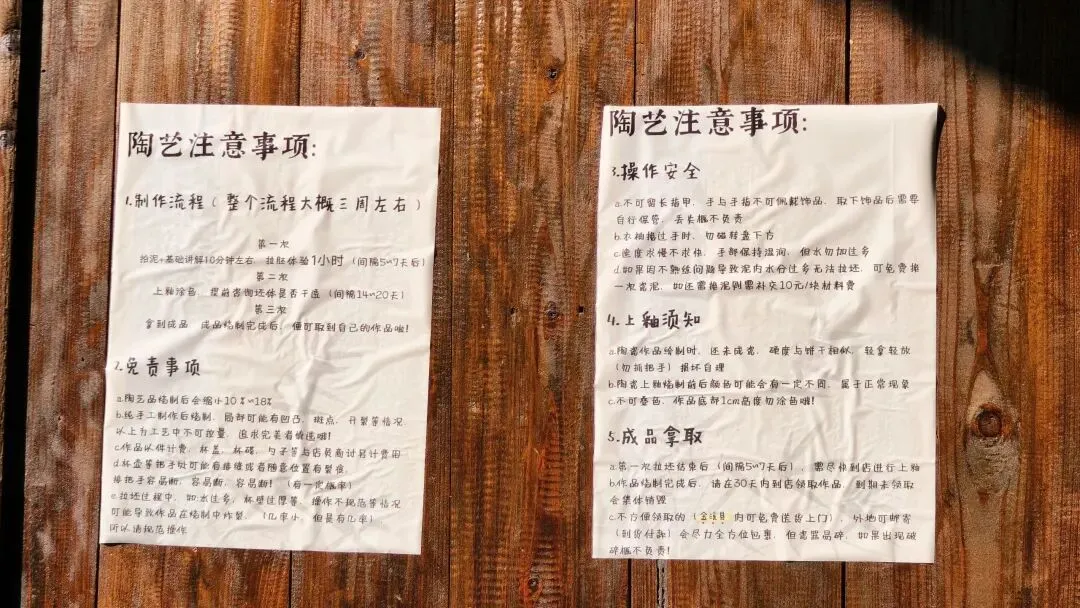 陶艺注意事项:
1.制作流程（整个流程大概三周左右）
第一次
拍泥+基础讲解10分钟左右，拉胚体验1小时（间隔5~7天后）
第二次
上釉涂色，提前咨询坯体是否干透（间隔14~20天）
第三次
拿到成品 成品烧制完成后，便可取到自己的作品啦!
2.免责事项
a.陶艺品烧制后会缩小10%~18%
b.纯手工制作后烧制，局部可能有凹凸，斑点，开裂等情况，
以上为工艺中不可控量，追求完美者慎选哦!
c.作品以件计费，杯盖，杯碟，勺子等与店员商讨另计费用
d.杯壶等把手处可能有接缝或者随意位置有裂痕，
接把手容易断，容易断，容易断!（有一定概率）
e.拉坯过程中，如水过多，杯壁过厚等，操作不规范等情况
可能导致作品在烧制中炸裂，（几率小，但是有几率）
所以请规范操作
陶艺注意事项:
3.操作安全
a.不可留长指甲，手与手指不可佩戴饰品，取下饰品后需要
自行保管，丢失概不负责
b.衣袖捋过手肘，勿碰转盘下方
c.速度求慢不求快，手部保持湿润，但水勿加过多
d.如果因不熟练问题导致泥内水份过多无法拉坯，可免费换
一次瓷泥，如还需换泥则需补交10元/块材料费
4.上釉须知
a.陶瓷作品绘制时，还未成瓷，硬度与饼干相似，轻拿轻放
（勿抓把手）损坏自理
b.陶瓷上釉烧制前后颜色可能会有一定不同，属于正常现象
c.不可叠色，作品底部1cm高度勿涂色哦!
5.成品拿取
a.第一次拉坯结束后（间隔5~7天后），需尽快到店进行上釉
b.作品烧制完成后，请在30天内到店领取作品，到期未领取
会集体销毁
c.不方便领取的（ 内可免费送货上门），外地可邮寄
（到货付款）会尽力全方位包裹，但瓷器易碎，如果出现破
碎概不负责!